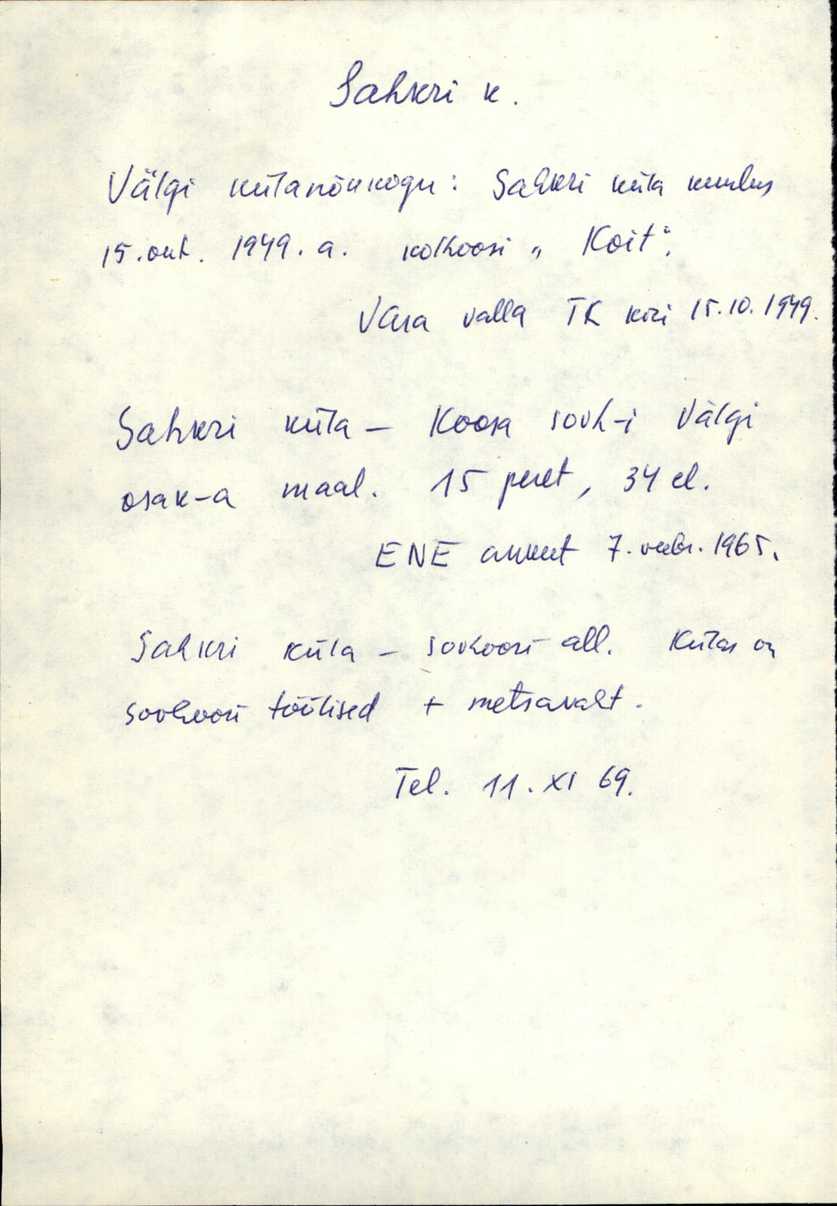 Sahkri k.
Välgi külanõukogu: Sahkri küla kuulus
15. okt. 1949. a. kolhoosi „Koit“.
Vara valla TK kiri 15.10.1949.
Sahkri küla – Koosa sovh-i Välgi
osak-a maal. 15 peret, 34 el.
ENE ankeet 7. veebr. 1965.
Sahkri küla – sovhoosi all. Külas on
sovhoosi töölised + metsavaht.
Tel. 11. XI 69.